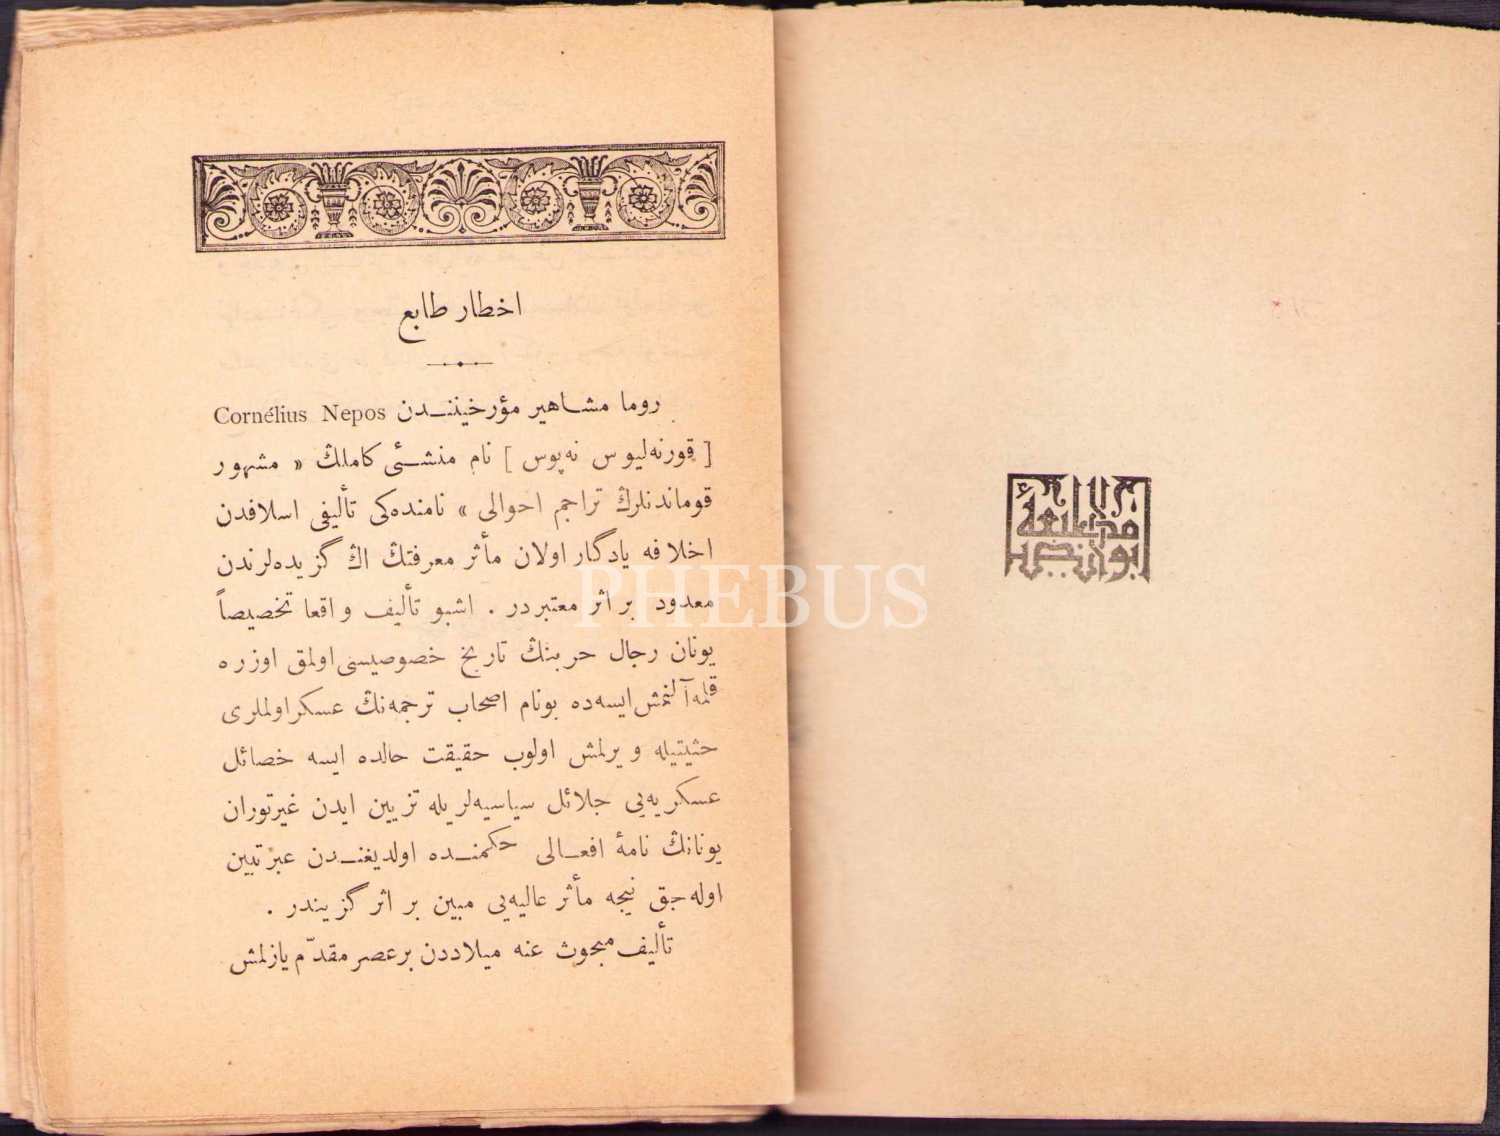 مطبعهٔ
ابوالضیا
اخطار طابع
روما مشاهیر مؤرخیننــدن Cornélius Nepos
[ قورنه‌لیوس نه‌پوس ] نام منشــئ کاملك « مشهور
قوماندنلرڭ تراجم احوالی » نامنده‌کی تألیفی اسلافدن
اخلافه یادگار اولان مأثر معرفتڭ اڭ گزیده‌لرندن
معدود بر اثر معتبردر . اشبو تألیف واقعا تخصیصاً
یونان رجال حربنڭ تاریخ خصوصیسی اولمق اوزره
قلمه آلنمش ایسه‌ده بونام اصحاب ترجمه‌نڭ عسکر اولملری
حثیتیله ویرلمش اولوب حقیقت حالده ایسه خصائل
عسکریه‌یی جلائل سیاسیه‌لریله تزیین ایدن غیرتوران
یونانڭ نامهٔ افعــالی حکمنــده اولدیغنــدن عبرتبین
اوله‌جق نیجه مأثر عالیه‌یی مبین بر اثر گزیندر .
تألیف مبحوث عنه میلاددن بر عصر مقدّم یازلمش
PHEBUS